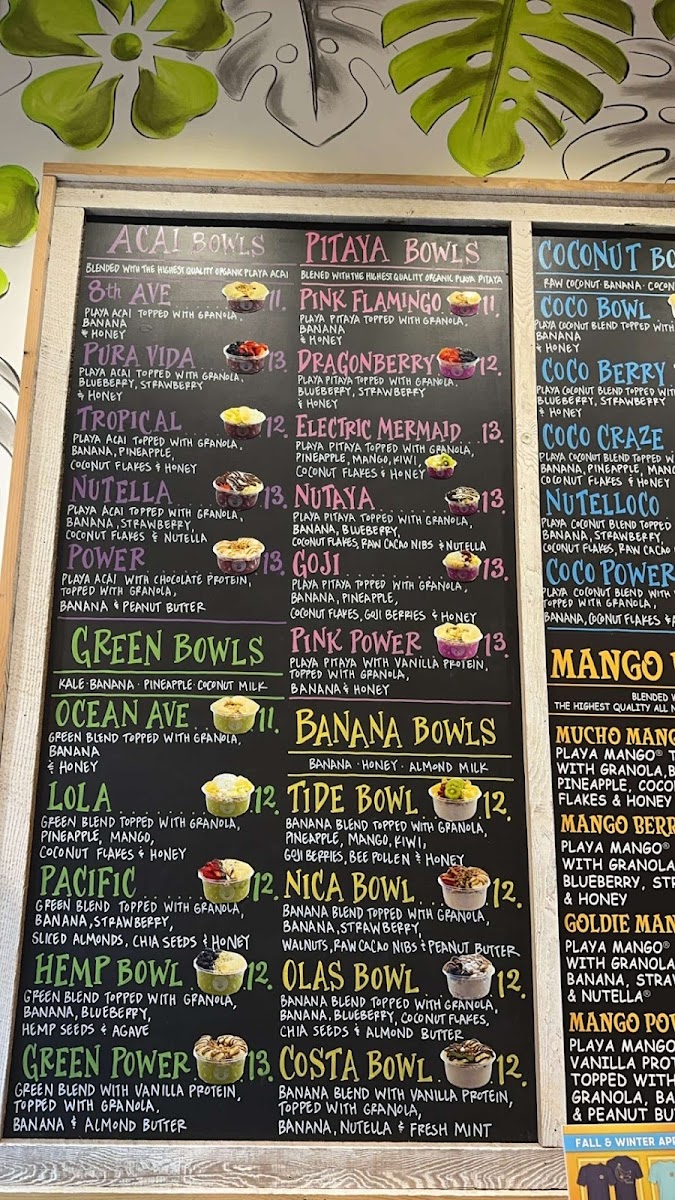 ACAI BOWLS
BLENDED WITH THE HIGHEST QUALITY ORGANIC PLAYA ACAI
8th AVE 11.
PLAYA ACAI TOPPED WITH GRANOLA,
BANANA
& HONEY
PURA VIDA 13.
PLAYA ACAI TOPPED WITH GRANOLA,
BLUEBERRY, STRAWBERRY
& HONEY
TROPICAL 12.
PLAYA ACAI TOPPED WITH GRANOLA,
BANANA, PINEAPPLE,
COCONUT FLAKES & HONEY
NUTELLA 13.
PLAYA ACAI TOPPED WITH GRANOLA,
BANANA, STRAWBERRY,
COCONUT FLAKES & NUTELLA
POWER 13.
PLAYA ACAI WITH CHOCOLATE PROTEIN,
TOPPED WITH GRANOLA,
BANANA & PEANUT BUTTER
GREEN BOWLS
KALE · BANANA · PINEAPPLE · COCONUT MILK
OCEAN AVE 11.
GREEN BLEND TOPPED WITH GRANOLA,
BANANA
& HONEY
LOLA 12.
GREEN BLEND TOPPED WITH GRANOLA,
PINEAPPLE, MANGO,
COCONUT FLAKES & HONEY
PACIFIC 12.
GREEN BLEND TOPPED WITH GRANOLA,
BANANA, STRAWBERRY,
SLICED ALMONDS, CHIA SEEDS & HONEY
HEMP BOWL 12.
GREEN BLEND TOPPED WITH GRANOLA,
BANANA, BLUEBERRY,
HEMP SEEDS & AGAVE
GREEN POWER 13.
GREEN BLEND WITH VANILLA PROTEIN,
TOPPED WITH GRANOLA,
BANANA & ALMOND BUTTER
PITAYA BOWLS
BLENED WITH THE HIGHEST QUALITY ORGANIC PLAYA PITAYA
PINK FLAMINGO 11.
PLAYA PITAYA TOPPED WITH GRANOLA,
BANANA
& HONEY
DRAGONBERRY 12.
PLAYA PITAYA TOPPED WITH GRANOLA,
BLUEBERRY, STRAWBERRY
& HONEY
ELECTRIC MERMAID 13.
PLAYA PITAYA TOPPED WITH GRANOLA,
PINEAPPLE, MANGO, KIWI,
COCONUT FLAKES & HONEY
NUTAYA 13.
PLAYA PITAYA TOPPED WITH GRANOLA,
BANANA, BLUEBERRY,
COCONUT FLAKES, RAW CACAO NIBS & NUTELLA
GOJI 13.
PLAYA PITAYA TOPPED WITH GRANOLA,
BANANA, PINEAPPLE,
COCONUT FLAKES, GOJI BERRIES & HONEY
PINK POWER 13.
PLAYA PITAYA WITH VANILLA PROTEIN,
TOPPED WITH GRANOLA,
BANANA & HONEY
BANANA BOWLS
BANANA · HONEY · ALMOND MILK
TIDE BOWL 12.
BANANA BLEND TOPPED WITH GRANOLA,
PINEAPPLE, MANGO, KIWI,
GOJI BERRIES, BEE POLLEN & HONEY
NICA BOWL 12.
BANANA BLEND TOPPED WITH GRANOLA,
BANANA, STRAWBERRY,
WALNUTS, RAW CACAO NIBS & PEANUT BUTTER
OLAS BOWL 12.
BANANA BLEND TOPPED WITH GRANOLA,
BANANA, BLUEBERRY, COCONUT FLAKES,
CHIA SEEDS & ALMOND BUTTER
COSTA BOWL 12.
BANANA BLEND WITH VANILLA PROTEIN,
TOPPED WITH GRANOLA,
BANANA, NUTELLA & FRESH MINT
COCONUT BO
RAW COCONUT · BANANA · COCON
COCO BOWL
PLAYA COCONUT BLEND TOPPED WITH
BANANA
& HONEY
COCO BERRY
PLAYA COCONUT BLEND TOPPED WIT
BLUEBERRY, STRAWBERRY
& HONEY
COCO CRAZE
PLAYA COCONUT BLEND TOPPED W
BANANA, PINEAPPLE, MANG
COCONUT FLAKES & HONEY
NUTELLOCO
PLAYA COCONUT BLEND TOPPED
BANANA, STRAWBERRY,
COCONUT FLAKES, RAW CACAO
COCO POWER
PLAYA COCONUT BLEND WITH
TOPPED WITH GRANOLA,
BANANA, COCONUT FLAKES &
MANGO
BLENDED W
THE HIGHEST QUALITY ALL N
MUCHO MANG
PLAYA MANGO® T
WITH GRANOLA, B
PINEAPPLE, COCO
FLAKES & HONEY
MANGO BERR
PLAYA MANGO®
WITH GRANOLA
BLUEBERRY, STR
& HONEY
GOLDIE MAN
PLAYA MANGO®
WITH GRANOLA
BANANA, STRAW
& NUTELLA®
MANGO POW
PLAYA MANGO
VANILLA PROT
TOPPED WITH
GRANOLA, BA
& PEANUT BU
FALL & WINTER APP